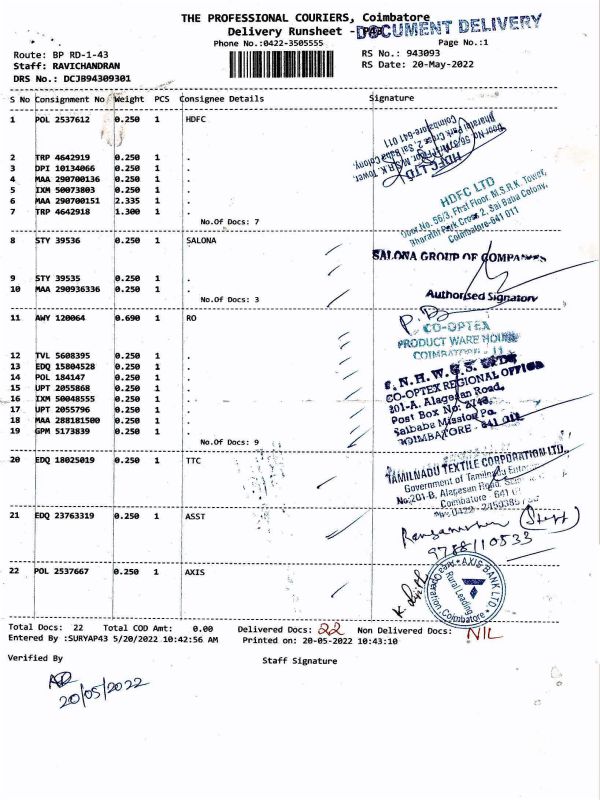 THE PROFESSIONAL COURIERS, Coimbatore
DOCUMENT DELIVERY
Delivery Runsheet -
Phone No.:0422-3505555
Page No.:1
Route: BP RD-1-43
RS No.: 943093
Staff: RAVICHANDRAN
RS Date: 20-May-2022
DRS No.: DCJB94309301
S No Consignment No Weight PCS Consignee Details Signature
1 POL 2537612 0.250 1 HDFC
HDFC LTD
2 TRP 4642919 0.250 1 .
3 DPI 10134066 0.250 1 .
4 MAA 290700136 0.250 1 .
5 IXM 50073803 0.250 1 .
6 MAA 290700151 2.335 1 .
7 TRP 4642918 1.300 1 .
No.Of Docs: 7
HDFC LTD
Door.No. 56/3, First Floor, M.S.R.K. Tower,
Bharathi Park Cross 2, Sai Baba Colony,
Coimbatore-641 011
8 STY 39536 0.250 1 SALONA
SALONA GROUP OF COMPANIES
9 STY 39535 0.250 1 .
10 MAA 290936336 0.250 1 .
No.Of Docs: 3
Authorised Signatory
11 AWY 120064 0.690 1 RO
CO-OPTEX
PRODUCT WARE HOUSE
COIMBATORE - 11
12 TVL 5608395 0.250 1 .
13 EDQ 15804528 0.250 1 .
14 POL 184147 0.250 1 .
15 UPT 2055868 0.250 1 .
16 IXM 50048555 0.250 1 .
17 UPT 2055796 0.250 1 .
18 MAA 288181500 0.250 1 .
19 GPM 5173839 0.250 1 .
No.Of Docs: 9
CO-OPTEX REGIONAL OFFICE
201-A, Alagesan Road,
Post Box No: 2748,
Saibaba Mission Po.
COIMBATORE - 641 011.
20 EDQ 18025019 0.250 1 TTC
TAMILNADU TEXTILE CORPORATION LTD.,
Government of Tamilnadu
No:201-B, Alagesan Road,
Coimbatore - 641
21 EDQ 23763319 0.250 1 ASST
(Staff)
9788110533
22 POL 2537667 0.250 1 AXIS
AXIS BANK LTD.
Coimbatore
Total Docs: 22 Total COD Amt: 0.00 Delivered Docs: 22 Non Delivered Docs: NIL
Entered By :SURYAP43 5/20/2022 10:42:56 AM Printed on: 20-05-2022 10:43:10
Verified By Staff Signature
20/05/2022